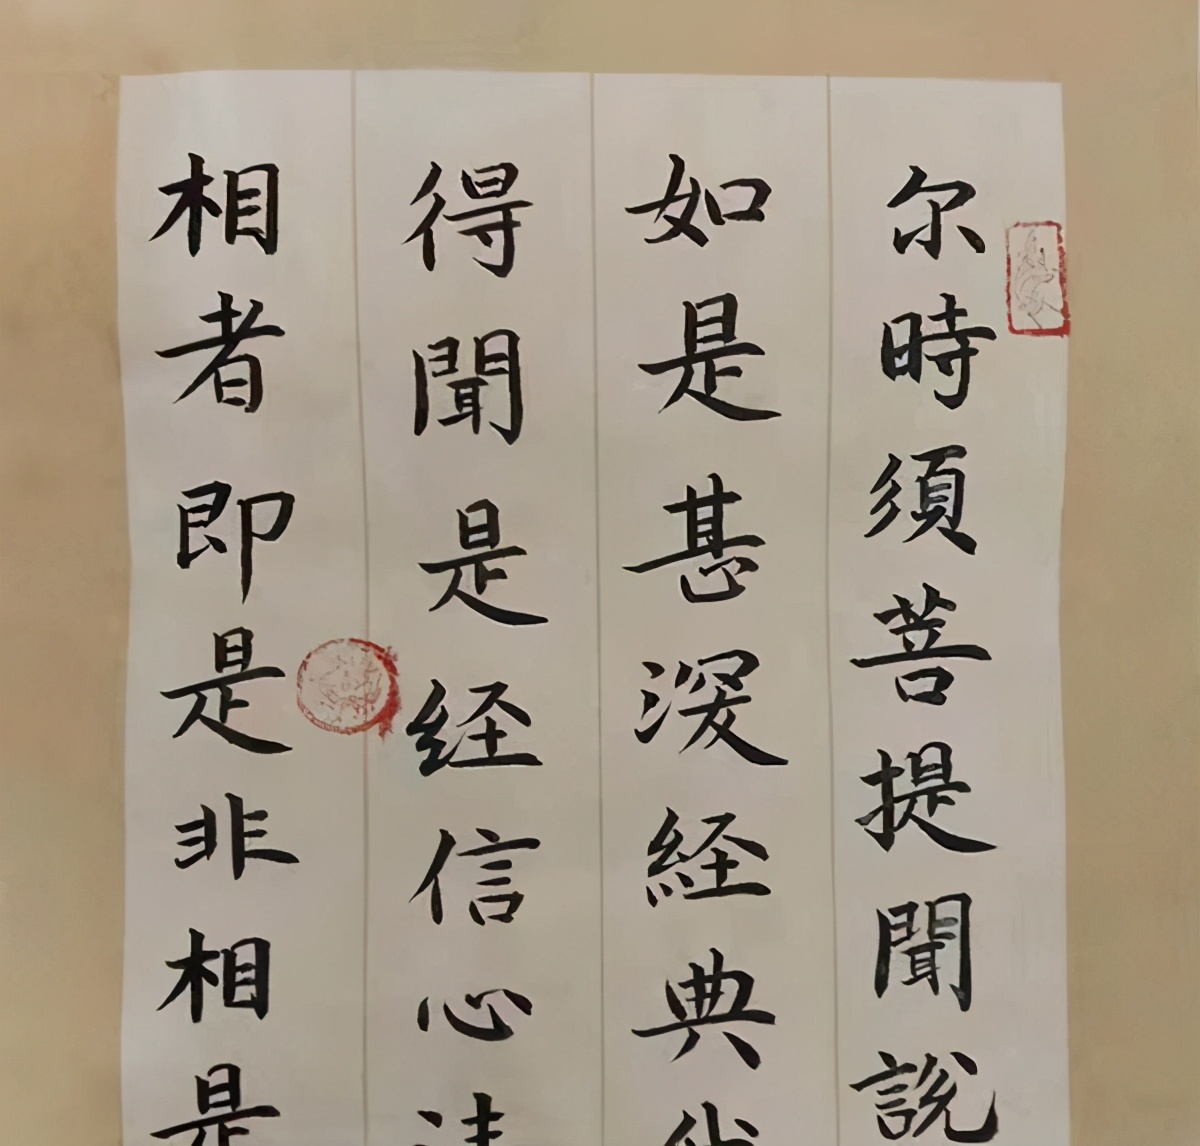 尔時須菩提聞説
如是甚深経典
得聞是经信心
相者即是非相是